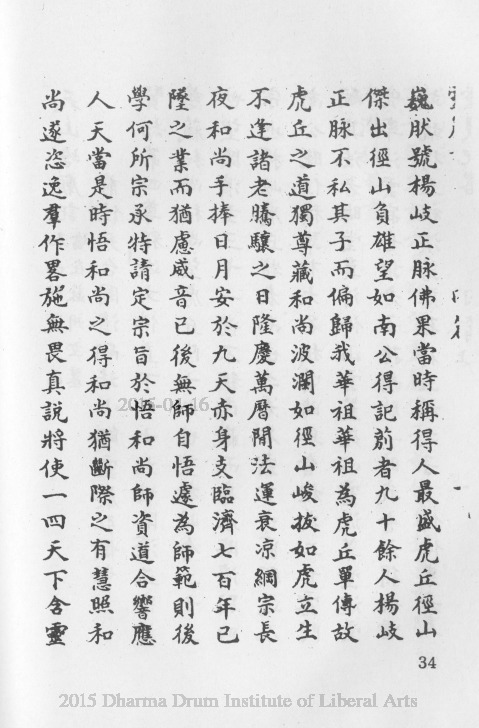 巍肰號楊岐正脉佛果當時稱得人最盛虎丘徑山
傑出徑山負雄望如南公得記莂者九十餘人楊岐
正脉不私其子而偏歸我華祖華祖為虎丘單傳故
虎丘之道獨尊藏和尚波瀾如徑山峻拔如虎立生
不逢諸老驕驤之日隆慶萬曆閒法運衰凉綱宗長
夜和尚手捧日月安於九天亦身支臨濟七百年已
墜之業而猶慮威音已後無師自悟遽為師範則後
學何所宗承特請定宗旨於悟和尚師資道合響應
人天當是時悟和尚之得和尚猶斷際之有慧照和
尚遂恣逸羣作畧施無畏真說將使一四天下含靈
34
2015-04-16
2015 Dharma Drum Institute of Liberal Arts